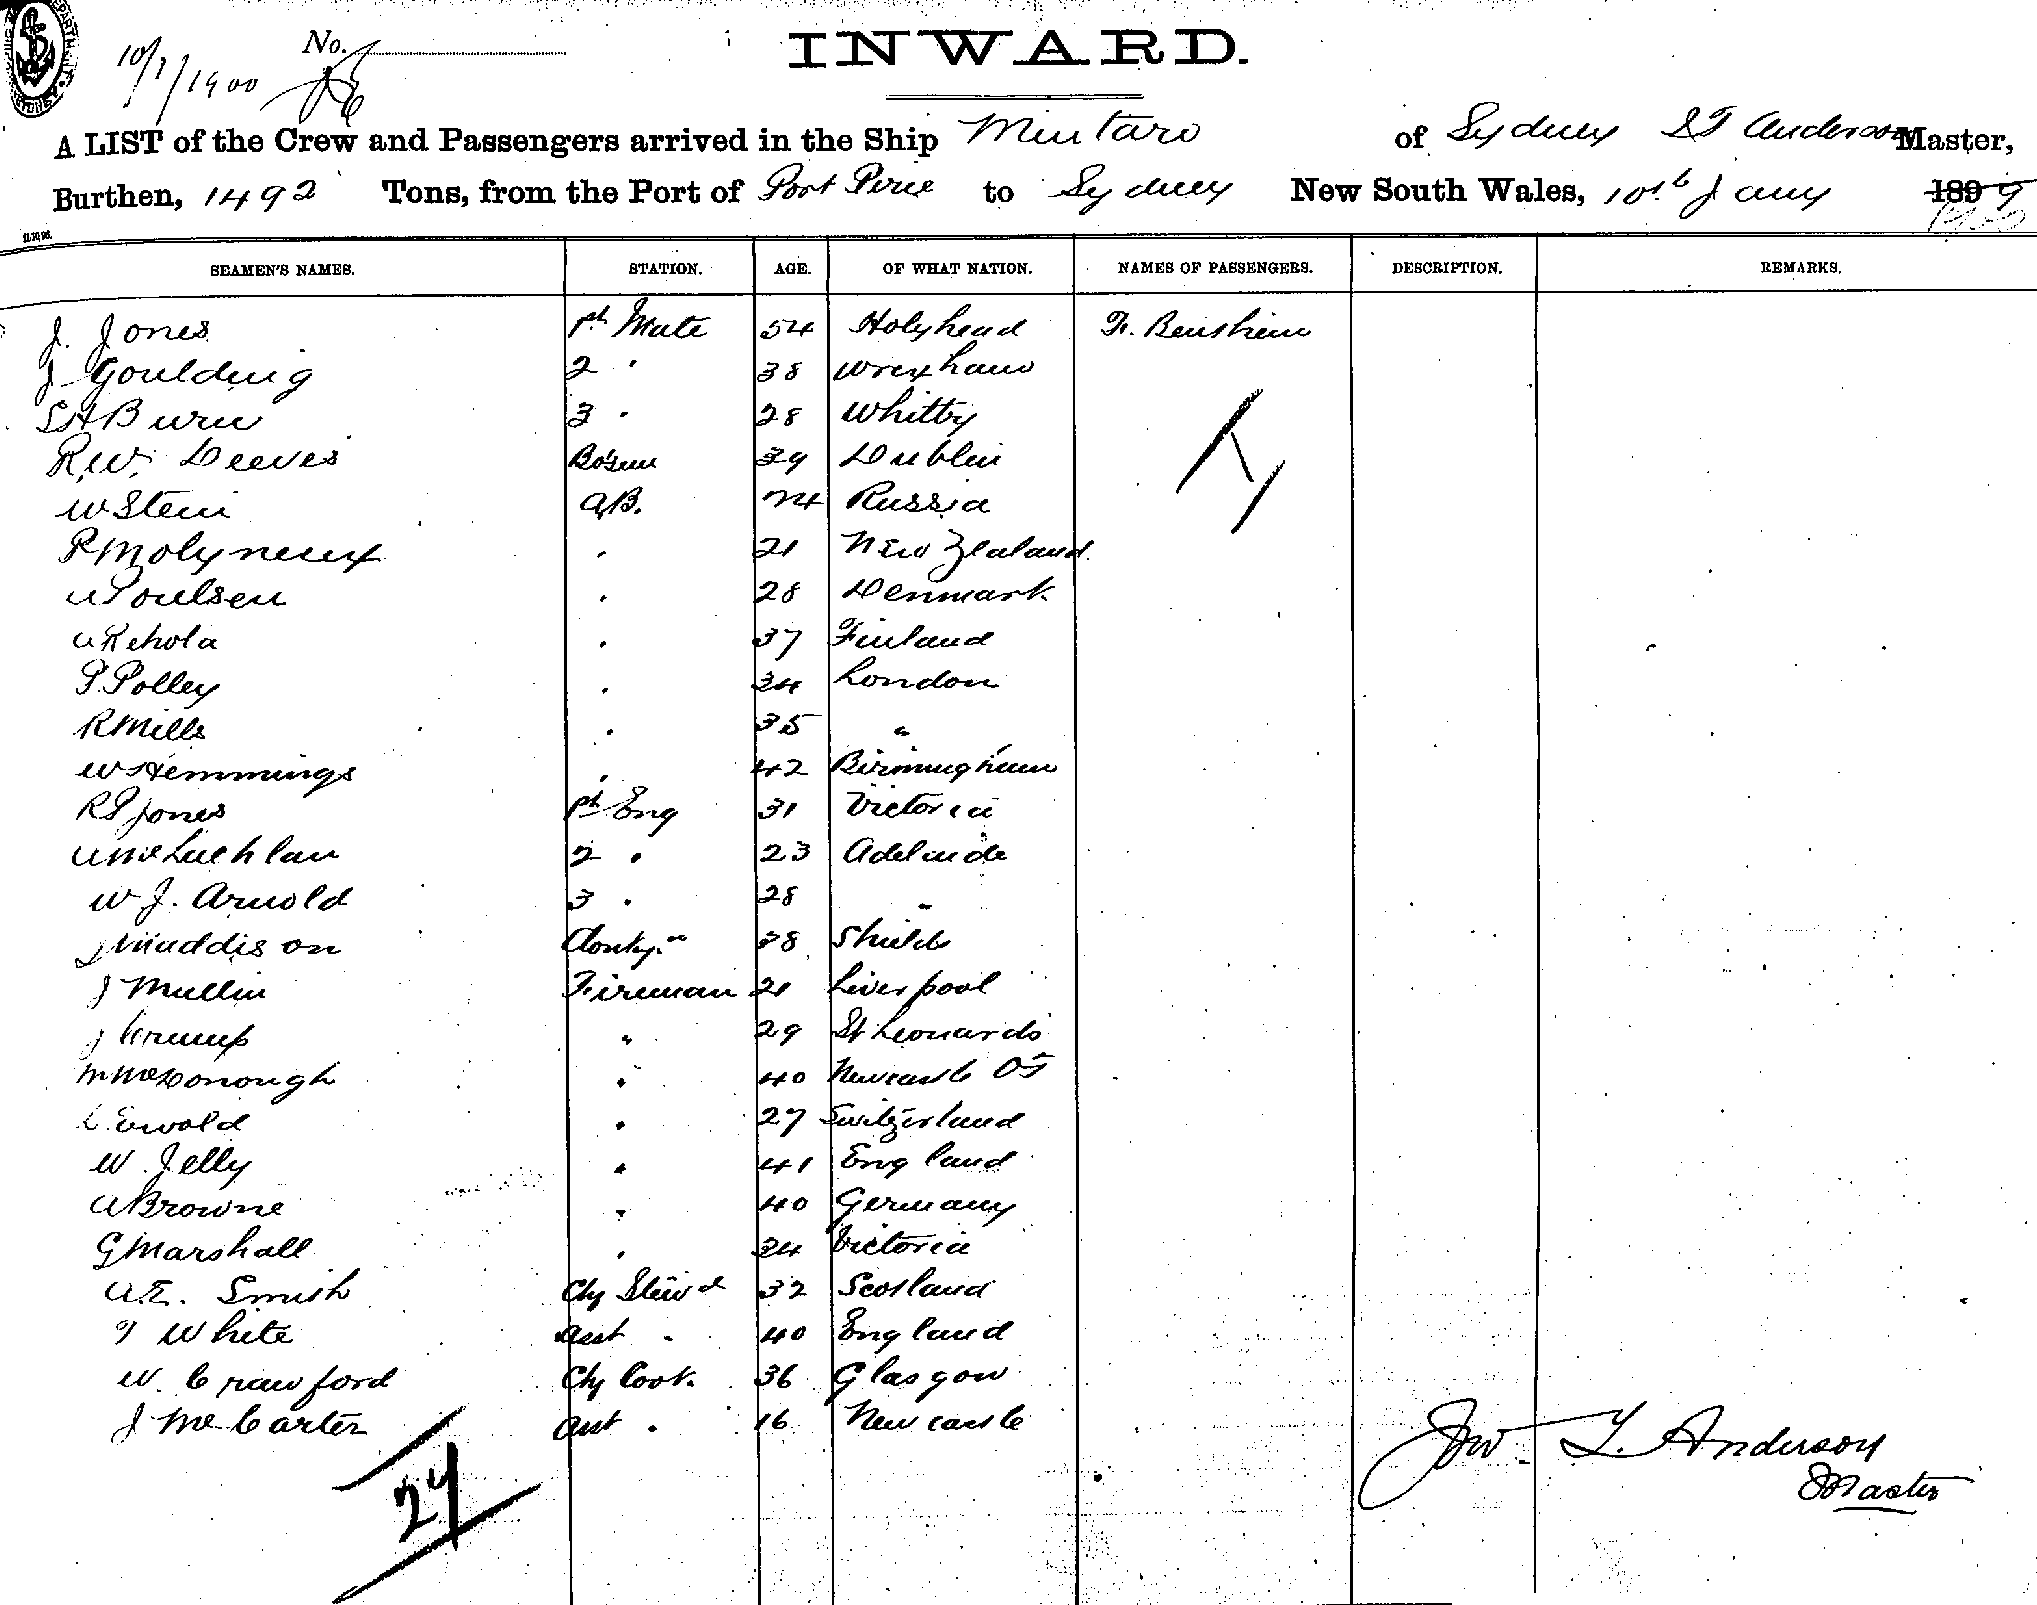 10/1/1900 No.
INWARD.
A LIST of the Crew and Passengers arrived in the Ship Mintaro of Sydney J T Anderson Master,
Burthen, 1492 Tons, from the Port of Port Pirie to Sydney New South Wales, 10th Jany 1899 1900
SEAMEN'S NAMES. STATION. AGE. OF WHAT NATION. NAMES OF PASSENGERS. DESCRIPTION. REMARKS.
J. Jones 1st Mate 54 Holyhead
J Goulding 2 " 38 Wrexham
S H Burn 3 " 28 Whitby
R.W. Deeves Bo'sun 39 Dublin
W Stein A.B. 24 Russia
R Molyneux " 21 New Zealand
A Poulsen " 28 Denmark
A Rehola " 37 Finland
P. Polley " 34 London
R Mills " 35 "
W Hemmings " 42 Birmingham
R P Jones 1st Eng 31 Victoria
A McLachlan 2 " 23 Adelaide
W J. Arnold 3 " 28 "
J Maddison Donkyn 38 Shields
J Mullin Fireman 21 Liverpool
J Crump " 29 St Leonards
M McDonough " 40 Newcastle
L. Ewald " 27 Switzerland
W. Jelly " 41 England
A Browne " 40 Germany
G Marshall " 24 Victoria
A.E. Smith Ch Stewd 32 Scotland
T White Asst " 40 England
W. Crawford Ch Cook. 36 Glasgow
J McCarter Asst " 16 Newcastle
27
Jno. T. Anderson
Master